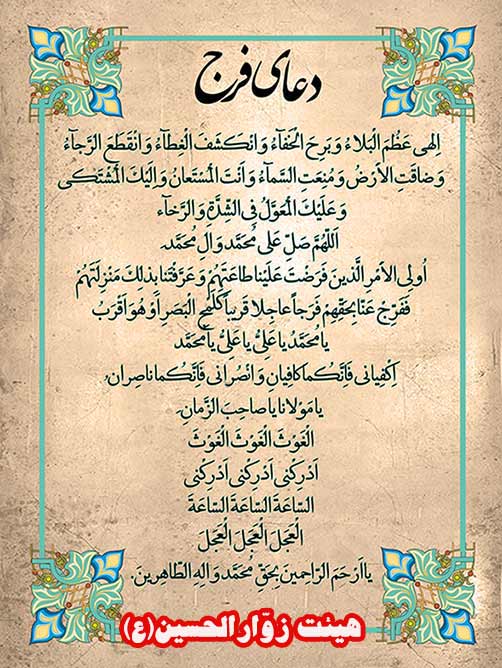 دعای فرج
اِلهی عَظُمَ الْبَلاءُ وَ بَرِحَ الْخَفآءُ وَ انْکَشَفَ الْغِطآءُ وَ انْقَطَعَ الرَّجآءُ
وَ ضاقَتِ الْأَرْضُ وَ مُنِعَتِ السَّمآءُ وَ أَنْتَ الْمُسْتَعانُ وَ إِلَیْکَ الْمُشْتَکی
وَ عَلَیْکَ الْمُعَوَّلُ فِی الشِّدَّةِ وَ الرَّخاء
اَللّهُمَّ صَلِّ عَلی مُحَمَّد وَ الِ مُحَمَّد.
اُولِی الْأَمْرِ الَّذینَ فَرَضْتَ عَلَیْنا طاعَتَهُمْ وَ عَرَّفْتَنا بِذلِکَ مَنْزِلَتَهُمْ
فَفَرِّجْ عَنّا بِحَقِّهِمْ فَرَجاً عاجِلا قَریباً کَلَمْحِ الْبَصَرِ أَوْ هُوَ أَقْرَبُ
یا مُحَمَّدُ یا عَلِیُّ یا عَلِیُّ یا مُحَمَّد
اِکْفِیانی فَاِنَّکُما کافِیانِ وَ انْصُرانی فَاِنَّکُما ناصِرانِ,
یا مَوْلانا یا صاحِبَ الزَّمانِ,
الْغَوْثَ الْغَوْثَ الْغَوْثَ
اَدْرِکْنی اَدْرِکْنی اَدْرِکْنی
السّاعَةَ السّاعَةَ السّاعَةَ
الْعَجَلَ الْعَجَلَ الْعَجَلَ
یا اَرْحَمَ الرّاحِمینَ بِحَقِّ مُحَمَّد وَ الِهِ الطّاهِرینَ.
هیئت زوّار الحسین (ع)